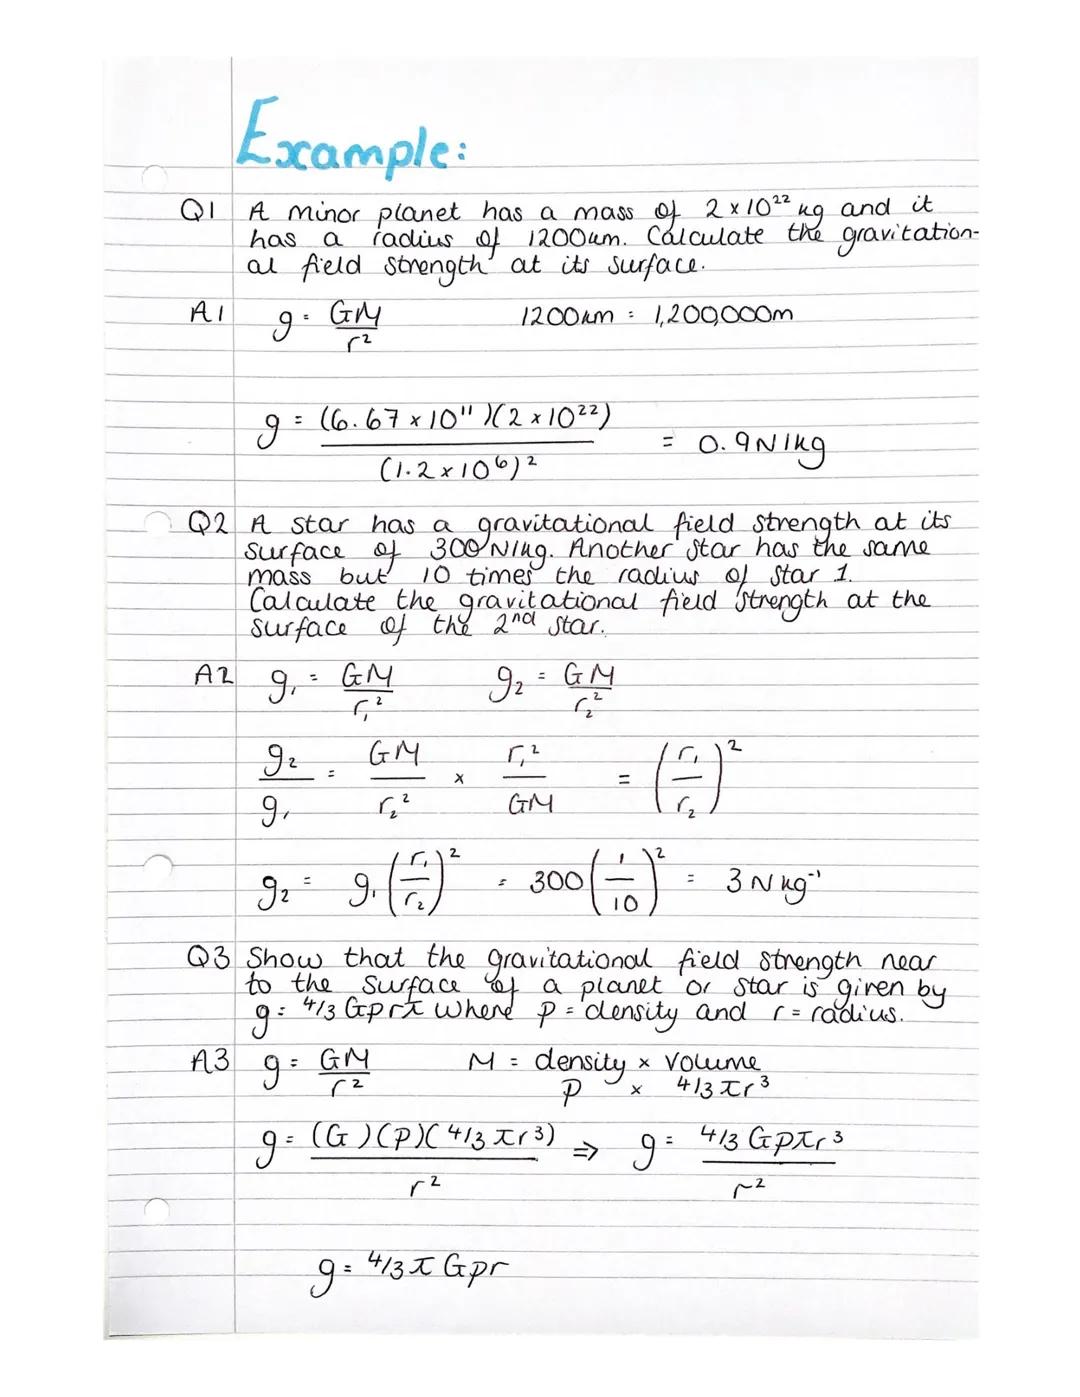 Example:
Q1 A minor planet has a mass of 2 × 10²² kg and it
has a radius of 1200km. Calculate the gravitation-
al field strength at its surface.
A1 g = GM/r² 1200km = 1,200,000m
g = (6.67 × 10¹¹)(2 × 10²²)/(1.2 × 10⁶)² = 0.9N/kg
Q2 A star has a gravitational field strength at its
surface of 300 N/kg. Another star has the same
mass but 10 times the radius of star 1.
Calculate the gravitational field strength at the
surface of the 2nd star.
A2 g₁ = GM/r₁² g₂ = GM/r₂²
g₂/g₁ = GM/r₂² × r₁²/GM = (r₁/r₂)²
g₂ = g₁(r₁/r₂)² = 300(1/10)² = 3 N kg⁻¹
Q3 Show that the gravitational field strength near
to the surface of a planet or star is given by
g = 4/3 Gprπ where p = density and r = radius.
A3 g = GM/r² M = density × volume
p × 4/3 πr³
g = (G)(p)(4/3 πr³)/r² ⇒ g = 4/3 Gpπr³/r²
g = 4/3 π Gpr